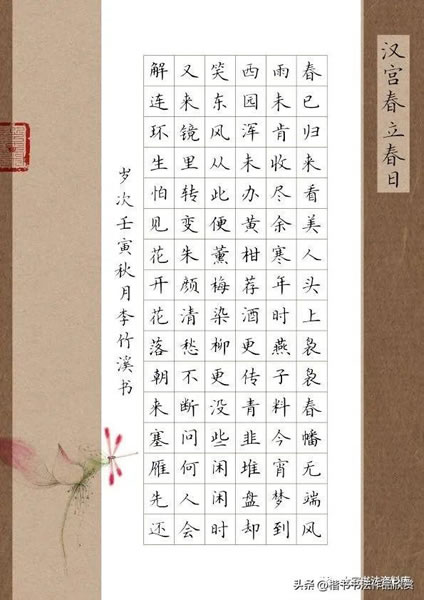 汉宫春立春日
春已归来看美人头上袅袅春幡无端风
雨未肯收尽余寒年时燕子料今宵梦到
西园浑未办黄柑荐酒更传青韭堆盘却
笑东风从此便薰梅染柳更没些闲闲时
又来镜里转变朱颜清愁不断问何人会
解连环生怕见花开花落朝来塞雁先还
岁次壬寅秋月李竹溪书
头条@楷书书法作品欣赏